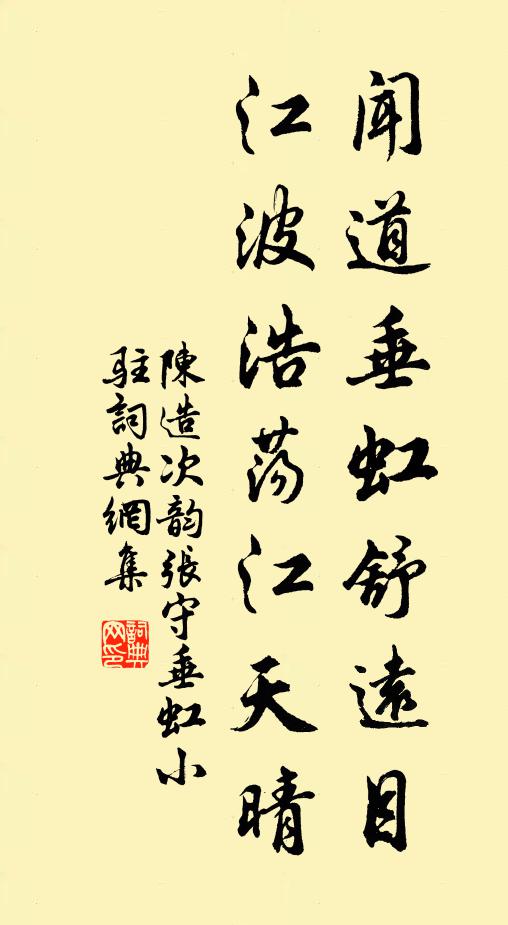 闻道垂虹舒遠目
江波浩荡江天晴
陳造次韵張守垂虹小
駐詞典網集
詞典
网印